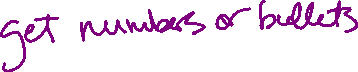 get numbers or bullets